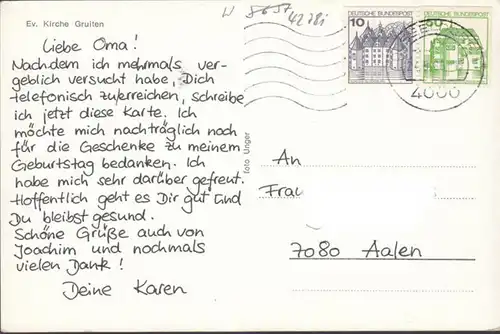 Ev. Kirche Gruiten
Liebe Oma!
Nachdem ich mehrmals ver-
geblich versucht habe, Dich
telefonisch zu erreichen, schreibe
ich jetzt diese Karte. Ich
möchte mich nachträglich noch
für die Geschenke zu meinem
Geburtstag bedanken. Ich
habe mich sehr darüber gefreut.
Hoffentlich geht es Dir gut und
Du bleibst gesund.
Schöne Grüße auch von
Joachim und nochmals
vielen Dank!
Deine Karen
foto Unger
DEUTSCHE BUNDESPOST
10
DEUTSCHE BUNDESPOST
50
4000
An
Frau
7080 Aalen